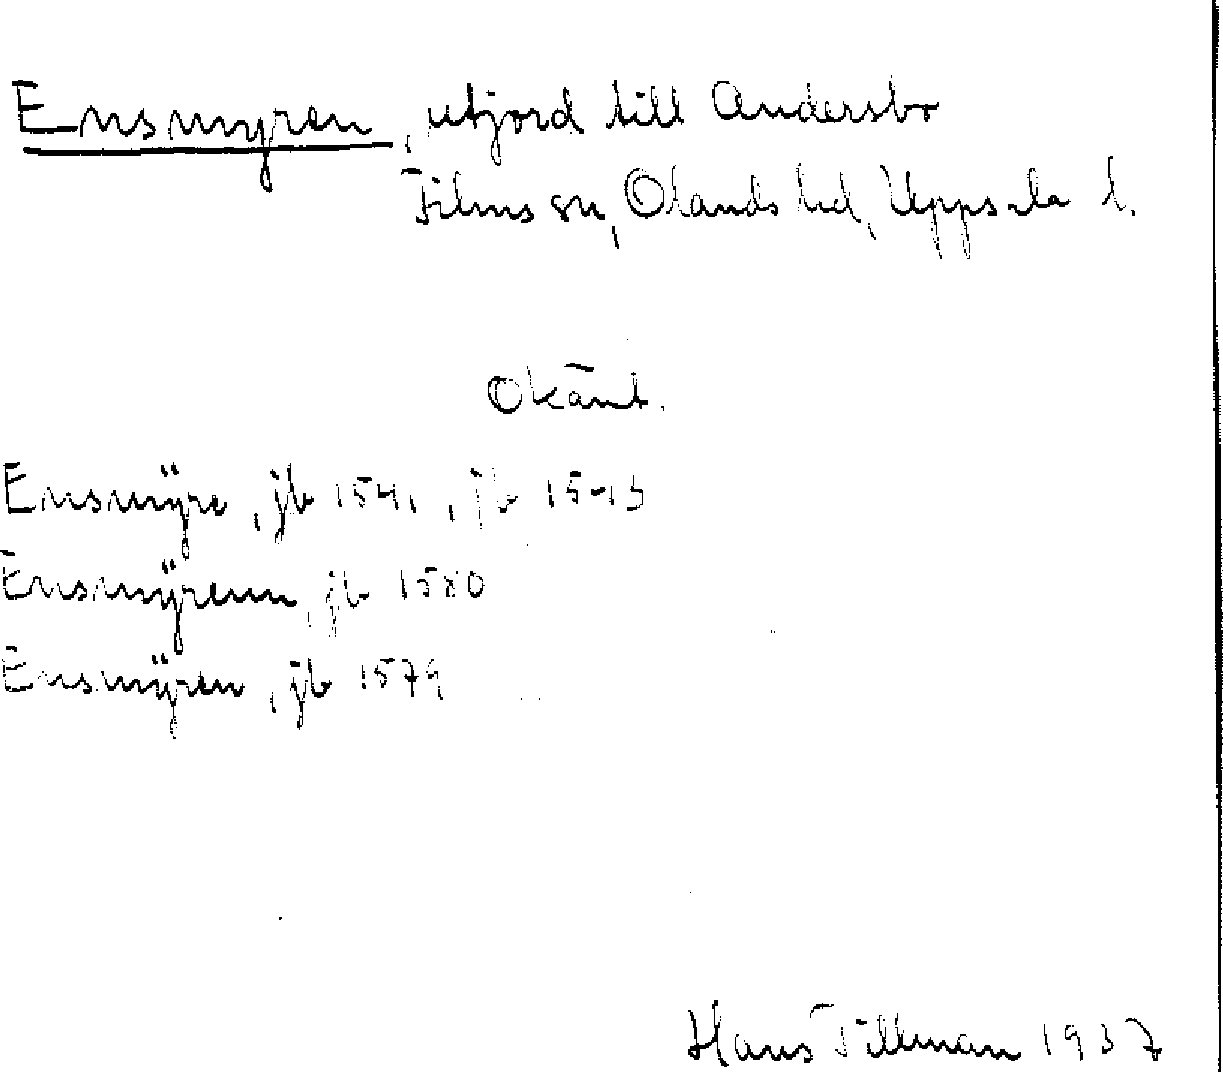 Ensmyren, utjord till Andersbo
Films sn, Olands hd, Uppsala l.
Okänt.
Ensmÿre, jb 1541, jb 1543
Ensmÿrenn, jb 1580
Ensmÿren, jb 1579
Hans Tillman 1937